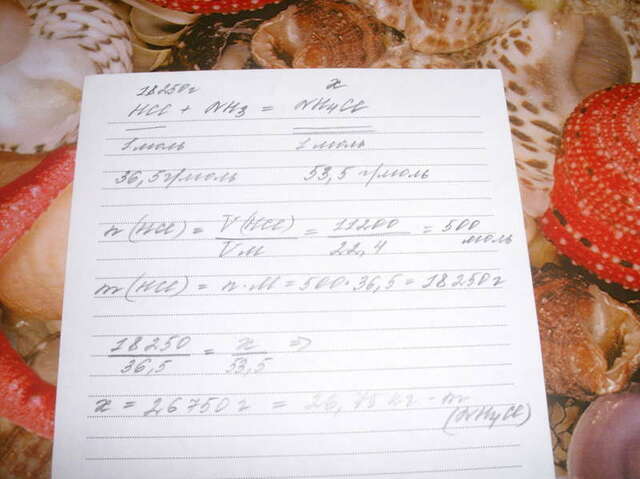 18250г x
HCl + NH3 = NH4Cl
1 моль 1 моль
36,5 г/моль 53,5 г/моль
n(HCl) = V(HCl)/Vм = 11200/22,4 = 500 моль
m(HCl) = n·M = 500·36,5 = 18250 г
18250/36,5 = x/53,5 =>
x = 26750 г = 26,75 кг - m (NH4Cl)